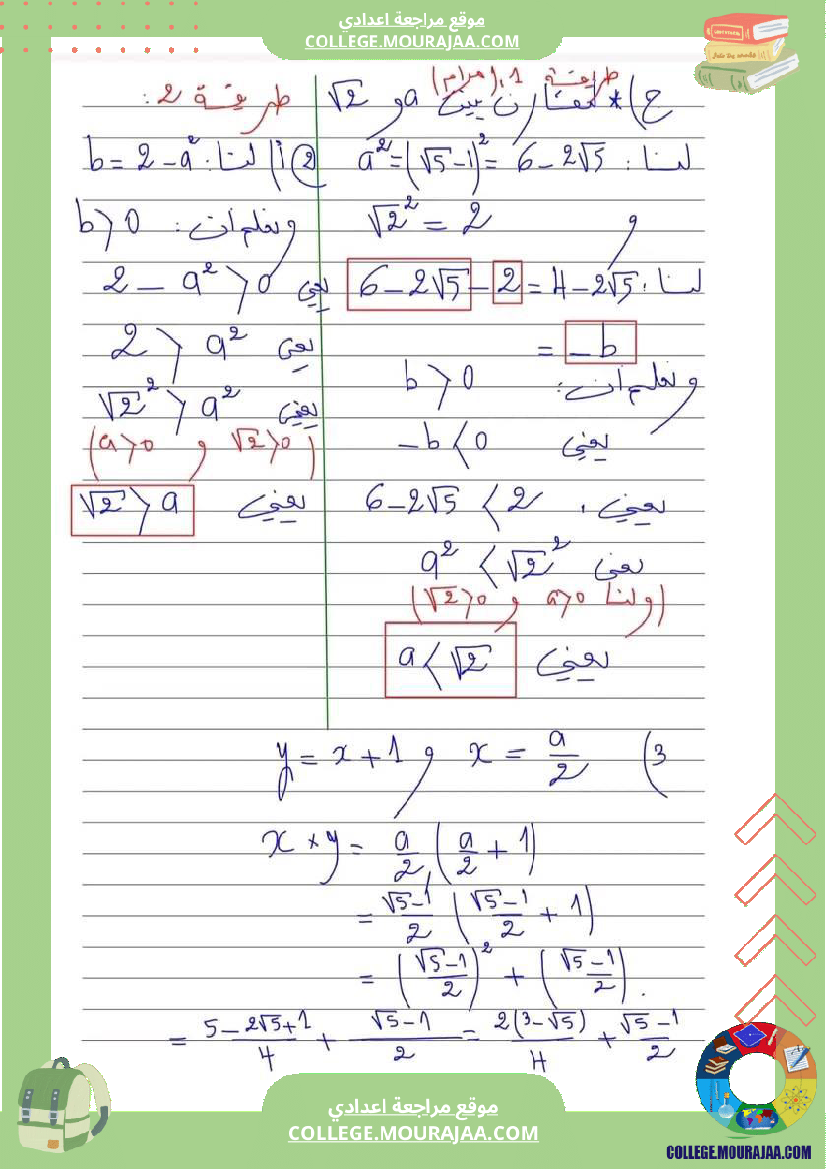 موقع مراجعة اعدادي
COLLEGE.MOURAJAA.COM
ج) * لنقارن بين a و √2
طريقة 1: (مرام)
لنا: a² = (√5-1)² = 6-2√5
و √2² = 2
لنا: 6-2√5-2 = 4-2√5
= -b
ونعلم أن: b>0
يعني -b<0
يعني: 6-2√5 < 2
يعني a² < √2²
(ولنا a>0 و √2>0)
يعني a<√2
طريقة 2:
2) أ) لنا: b = 2-a²
ونعلم أن: b>0
يعني 2-a²>0
يعني 2>a²
يعني √2²>a²
(√2>0 و a>0)
يعني √2>a
3) x = a/2 و y = x+1
x × y = a/2 (a/2 + 1)
= (√5-1)/2 ((√5-1)/2 + 1)
= ((√5-1)/2)² + ((√5-1)/2).
= (5-2√5+1)/4 + (√5-1)/2 = 2(3-√5)/4 + (√5-1)/2
موقع مراجعة اعدادي
COLLEGE.MOURAJAA.COM
COLLEGE.MOURAJAA.COM